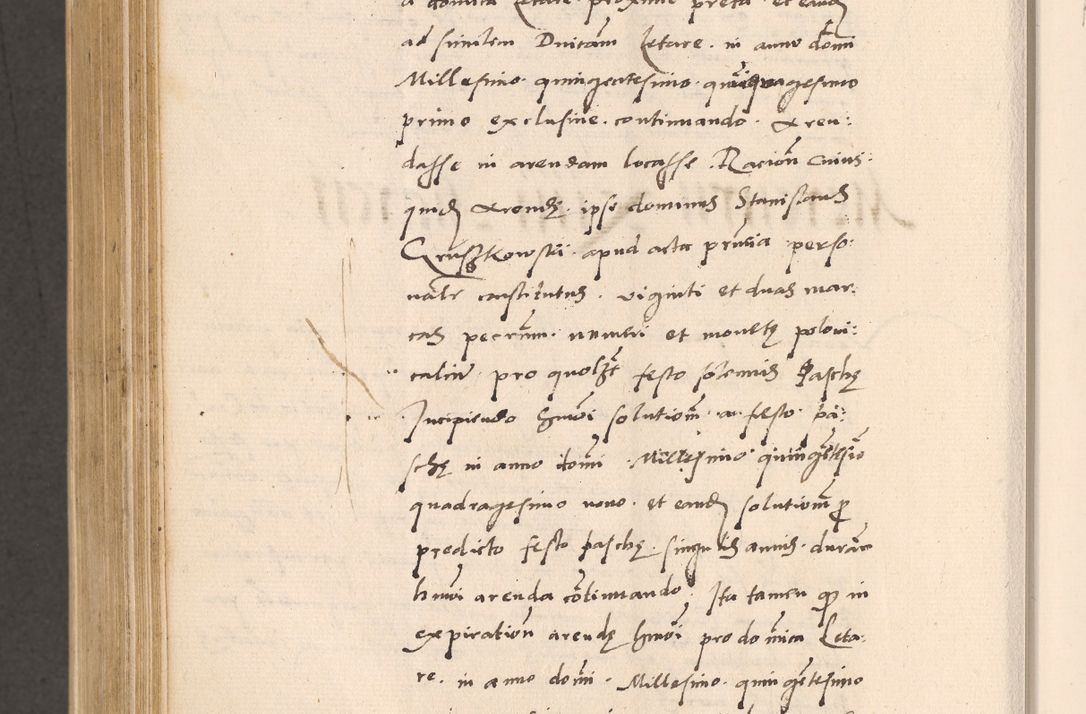 a domica Letare proxime preta et eand
ad similem Dnicam Letare. in anno domi
Millesimo. quingentesimo. quinquagesimo
primo exclusiue. continuando. Aren:
dasse in arendam locasse. Racion cuius
quid Arende. ipse dominus Stanislaus
Gruszkowski. apud acta prnia perso:
nalr constitutus. viginti et duas mar:
cas pecunn. numeri et monete poloni:
calium pro quolzt festo solemnis Pasche
Incipiendo hmoi solutiom a festo. pa:
sche in anno domi Millesimo quingetesimo
quadragesimo nono. et eand solutiom p
predicto festo pasche. singulis annis. duran
hmoi arenda continuando. Ita tamen qp in
expiration arende hmoi pro domica Leta:
re. in anno domi. Millesimo. quingetesimo